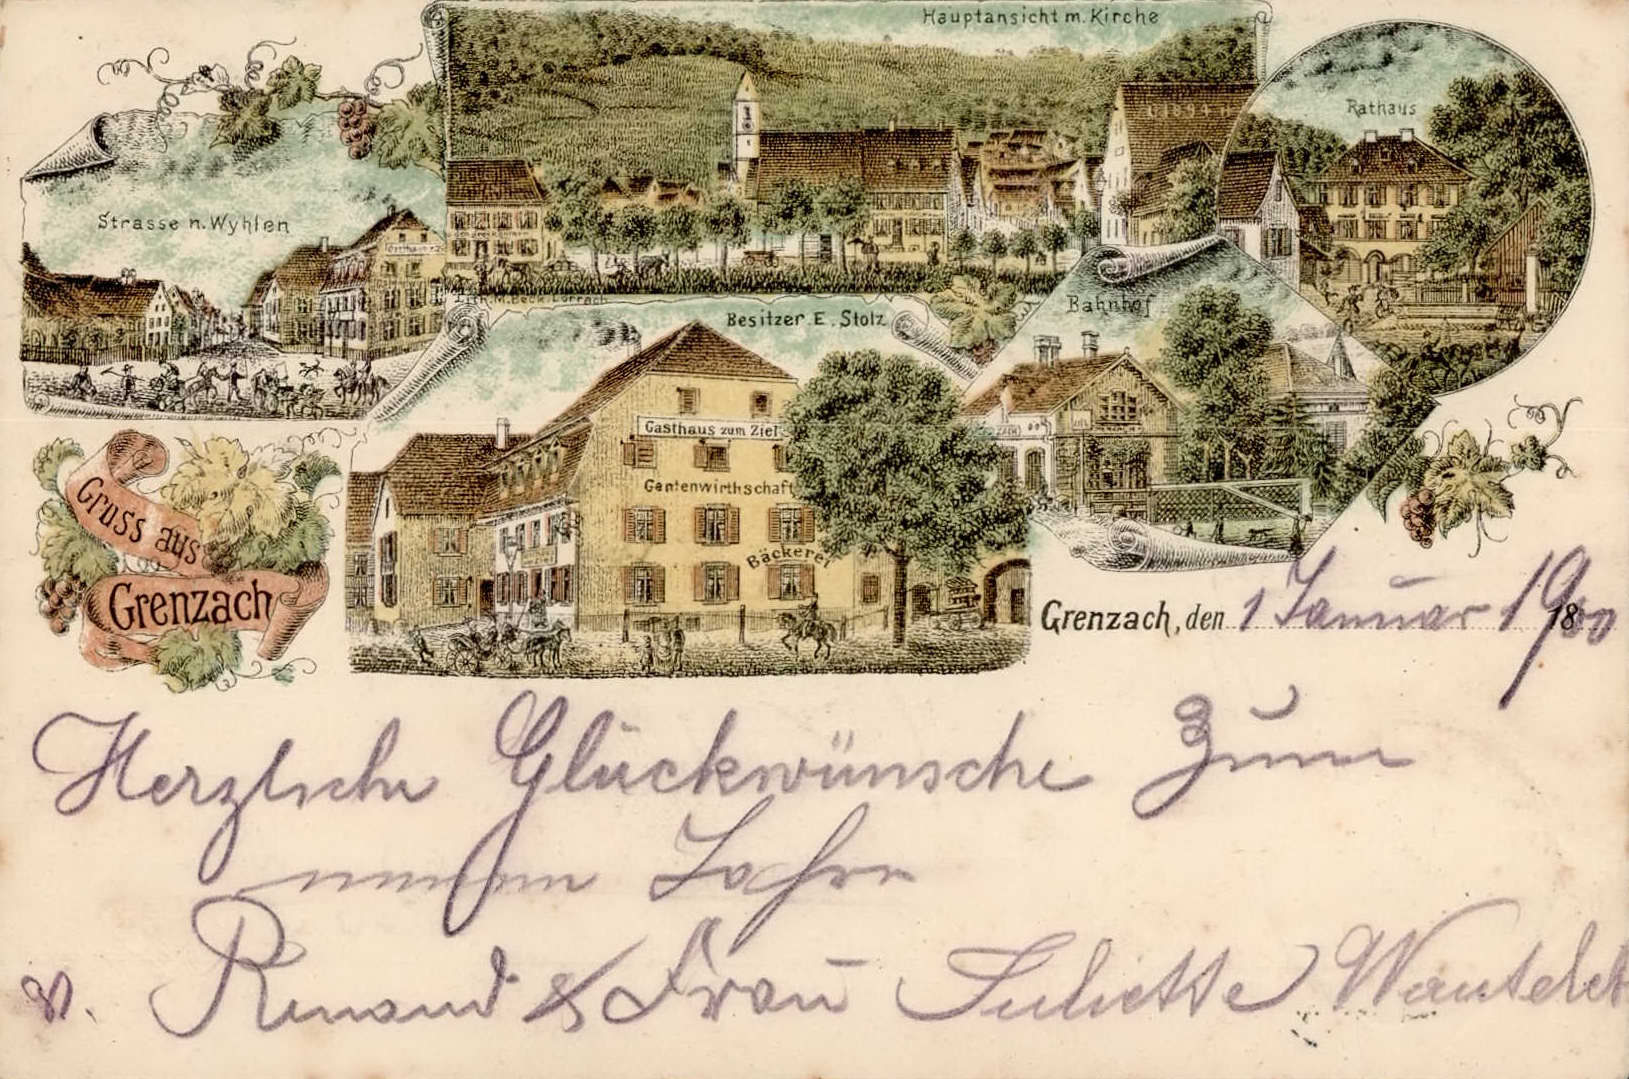 Hauptansicht m. Kirche
Rathaus
Strasse n. Wyhlen
Lith. M. Beck Lörrach
Besitzer E. Stolz
Bahnhof
Gasthaus zum Ziel
Gartenwirthschaft
Bäckerei
Gruss aus
Grenzach
Grenzach, den 1 Januar 1900 18
Herzliche Glückwünsche zum
neuen Jahre
v. Renand & Frau Juliette